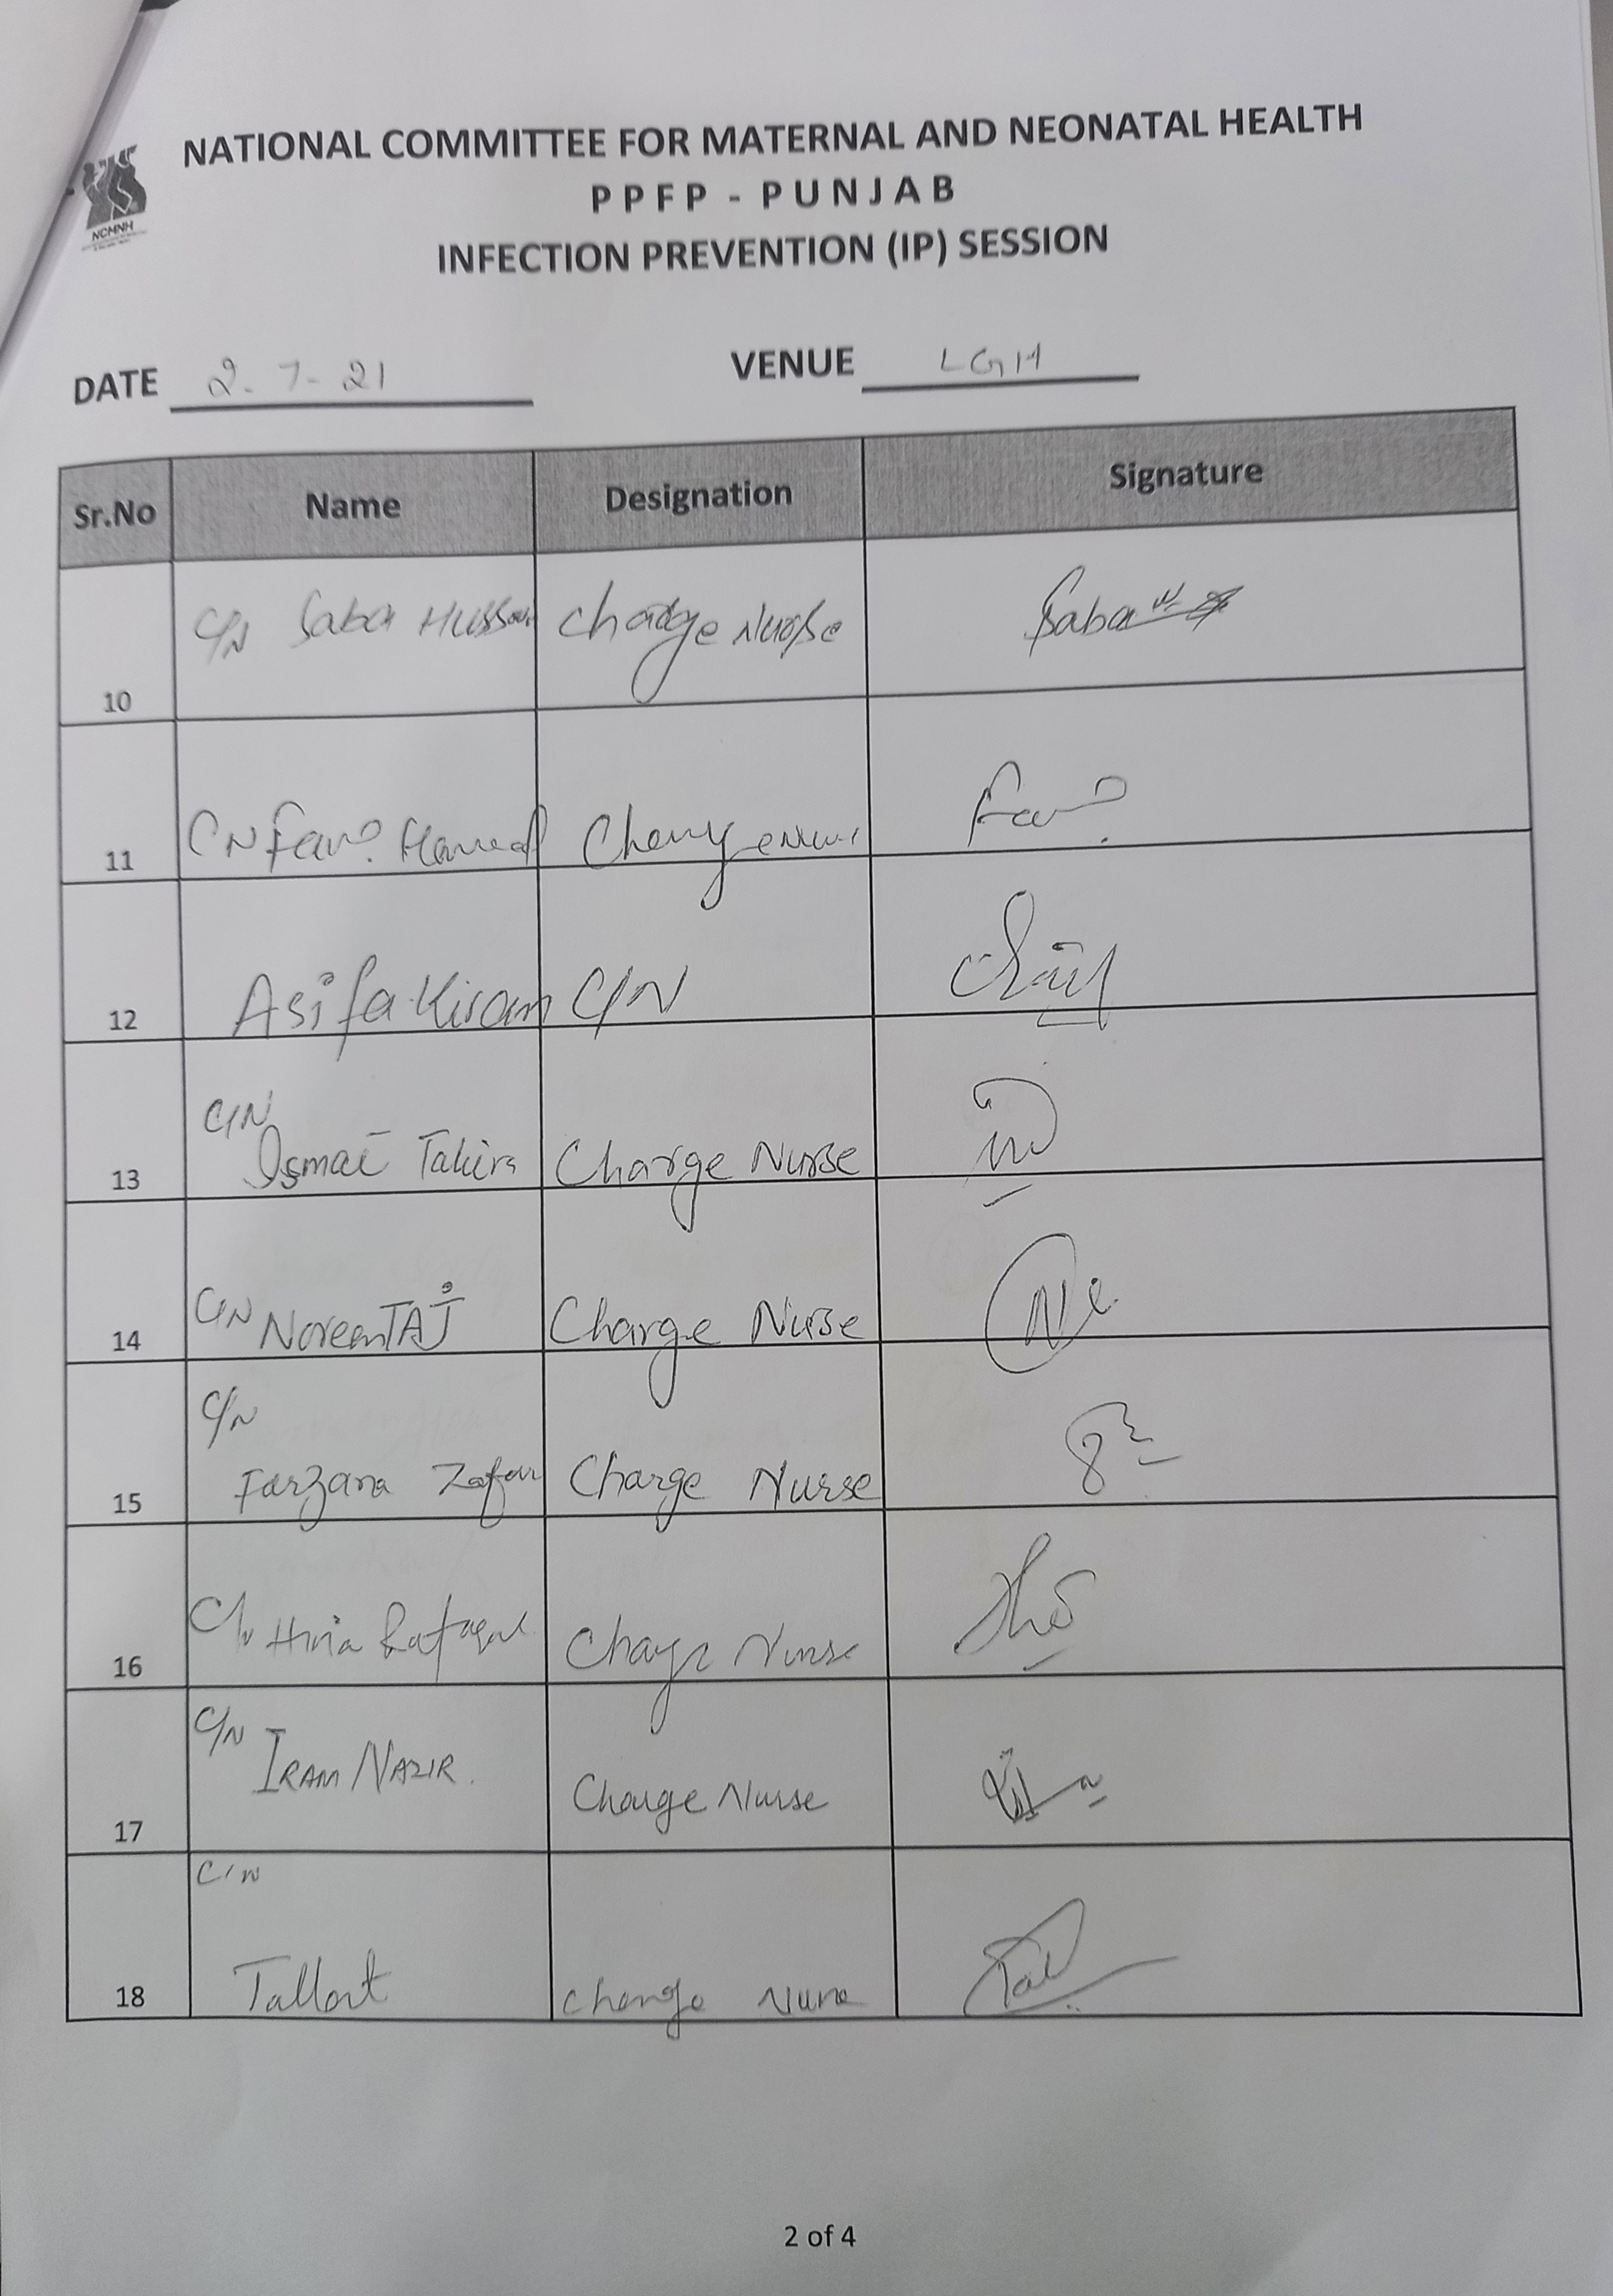 NATIONAL COMMITTEE FOR MATERNAL AND NEONATAL HEALTH
PPFP - PUNJAB
INFECTION PREVENTION (IP) SESSION
NCMNH
DATE 2-7-21 VENUE LGH
Sr.No Name Designation Signature
10 C/N Saba Hussain Charge Nurse Saba
11 CN Charge Nurse
12 Asifa Kiran C/N
13 C/N Tahira Charge Nurse
14 C/N Noreen TAJ Charge Nurse
15 C/N Farzana Zafar Charge Nurse
16 C/N Charge Nurse
17 C/N IRAM NAZIR. Charge Nurse
18 C/N Charge Nurse
2 of 4